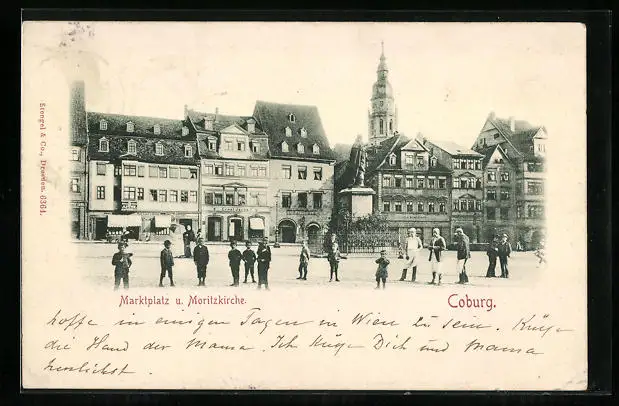 Stengel & Co., Dresden. 6364.
Marktplatz u. Moritzkirche.
Coburg.
hoffe in einigen Tagen in Wien zu sein. Küße
die Hand der Mama. Ich küße Dich und Mama
herzlichst.